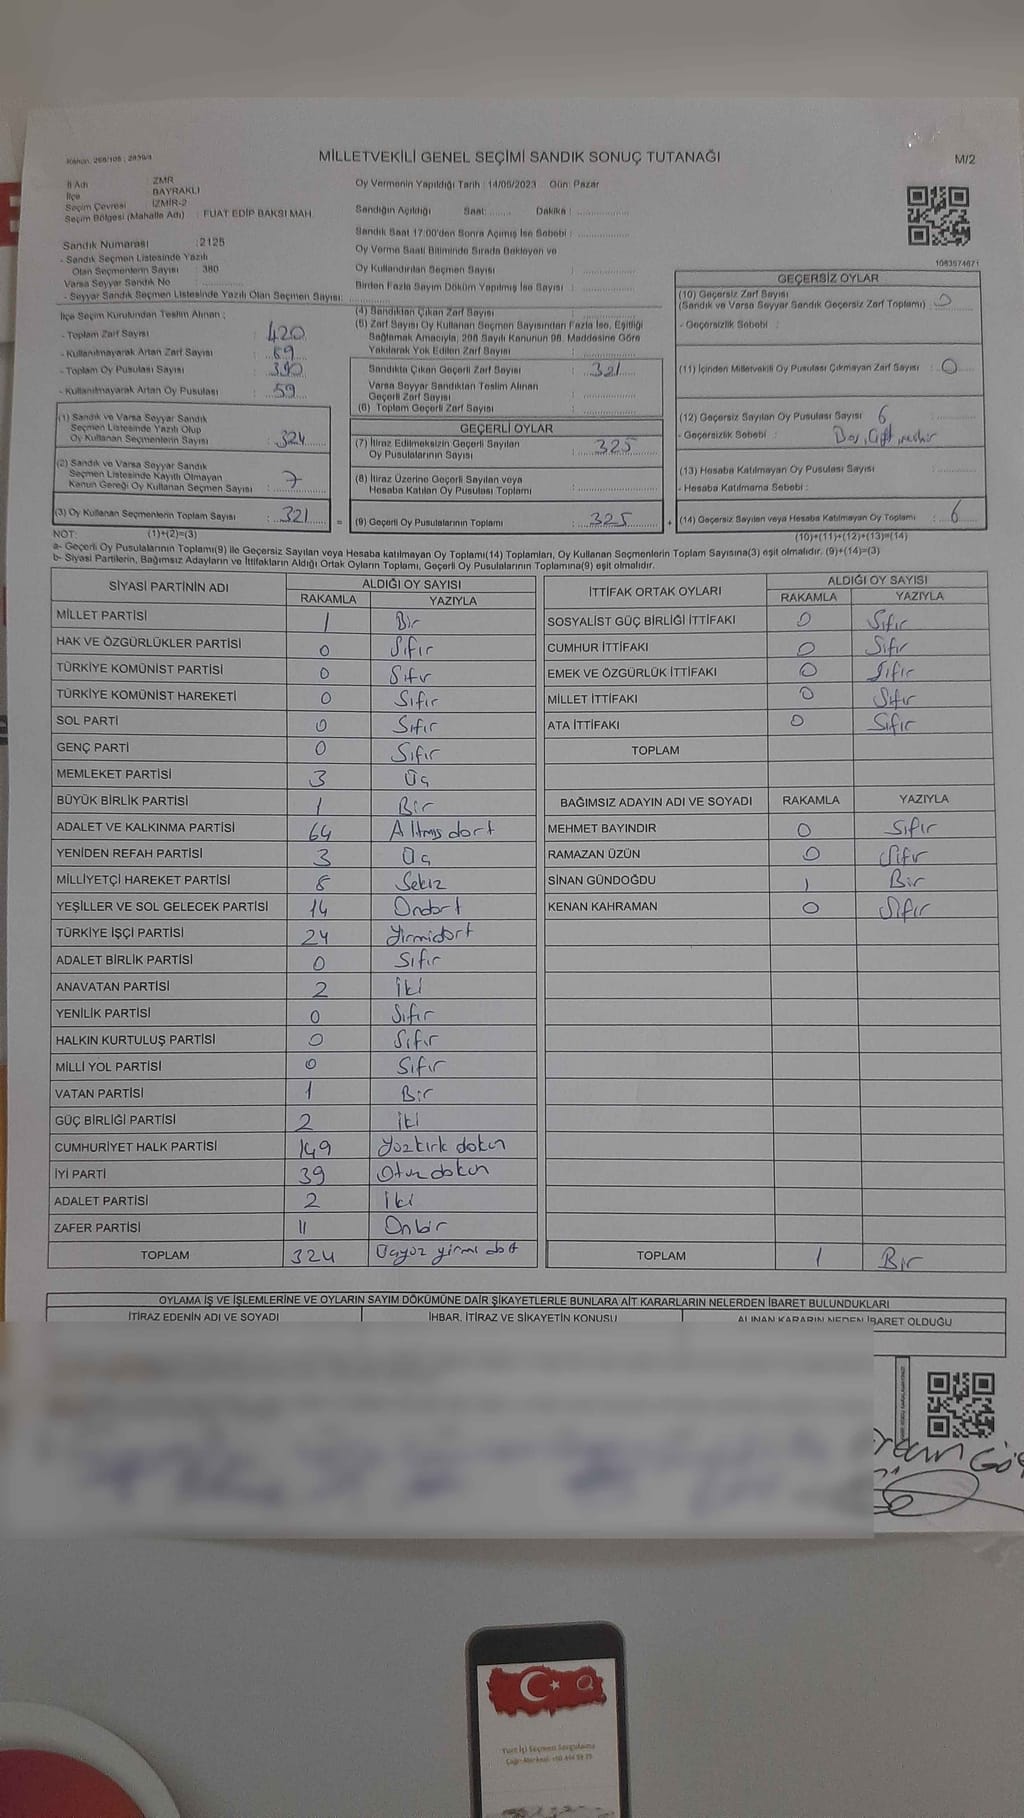 MİLLETVEKİLİ GENEL SEÇİMİ SANDIK SONUÇ TUTANAĞI
M/2
İl Adı : ZMR
İlçe BAYRAKLI
Seçim Çevresi İZMİR-2
Seçim Bölgesi (Mahalle Adı) : FUAT EDİP BAKSI MAH.
Sandık Numarası : 2125
- Sandık Seçmen Listesinde Yazılı
Olan Seçmenlerin Sayısı : 380
Varsa Seyyar Sandık No
- Seyyar Sandık Seçmen Listesinde Yazılı Olan Seçmen Sayısı:
Oy Vermenin Yapıldığı Tarih : 14/05/2023 Gün: Pazar
Sandığın Açıldığı Saat: Dakika :
Sandık Saat 17:00'den Sonra Açımış İse Sebebi :
Oy Verme Saati Bitiminde Sırada Bekleyen ve
Oy Kullandırılan Seçmen Sayısı :
Birden Fazla Sayım Döküm Yapılmış İse Sayısı :
1083574671
İlçe Seçim Kurulundan Teslim Alınan ;
- Toplam Zarf Sayısı : 420
- Kullanılmayarak Artan Zarf Sayısı : 89
- Toplam Oy Pusulası Sayısı : 390
- Kullanılmayarak Artan Oy Pusulası : 59
(1) Sandık ve Varsa Seyyar Sandık
Seçmen Listesinde Yazılı Olup
Oy Kullanan Seçmenlerin Sayısı : 324
(2) Sandık ve Varsa Seyyar Sandık
Seçmen Listesinde Kayıtlı Olmayan
Kanun Gereği Oy Kullanan Seçmen Sayısı : 7
(3) Oy Kullanan Seçmenlerin Toplam Sayısı : 321 =
(4) Sandıktan Çıkan Zarf Sayısı :
(5) Zarf Sayısı Oy Kullanan Seçmen Sayısından Fazla İse, Eşitliği
Sağlamak Amacıyla, 298 Sayılı Kanunun 98. Maddesine Göre
Yakılarak Yok Edilen Zarf Sayısı :
Sandıkta Çıkan Geçerli Zarf Sayısı : 321
Varsa Seyyar Sandıktan Teslim Alınan
Geçerli Zarf Sayısı :
(6) Toplam Geçerli Zarf Sayısı :
GEÇERLİ OYLAR
(7) İtiraz Edilmeksizin Geçerli Sayılan
Oy Pusulalarının Sayısı : 325
(8) İtiraz Üzerine Geçerli Sayılan veya
Hesaba Katılan Oy Pusulası Toplamı :
(9) Geçerli Oy Pusulalarının Toplamı : 325 +
GEÇERSİZ OYLAR
(10) Geçersiz Zarf Sayısı
(Sandık ve Varsa Seyyar Sandık Geçersiz Zarf Toplamı) : 0
- Geçersizlik Sebebi :
(11) İçinden Milletvekili Oy Pusulası Çıkmayan Zarf Sayısı : 0
(12) Geçersiz Sayılan Oy Pusulası Sayısı 6
- Geçersizlik Sebebi : Boş, Çift mühür
(13) Hesaba Katılmayan Oy Pusulası Sayısı :
- Hesaba Katılmama Sebebi :
(14) Geçersiz Sayılan veya Hesaba Katılmayan Oy Toplamı : 6
NOT: (1)+(2)=(3) (10)+(11)+(12)+(13)=(14)
a- Geçerli Oy Pusulaları Toplamı(9) ile Geçersiz Sayılan veya Hesaba katılmayan Oy Toplamı(14) Toplamları, Oy Kullanan Seçmenlerin Toplam Sayısına(3) eşit olmalıdır. (9)+(14)=(3)
b- Siyasi Partilerin, Bağımsız Adayların ve İttifakların Aldığı Ortak Oyların Toplamı, Geçerli Oy Pusulalarının Toplamına(9) eşit olmalıdır.
SİYASİ PARTİNİN ADI ALDIĞI OY SAYISI
RAKAMLA YAZIYLA
MİLLET PARTİSİ 1 Bir
HAK VE ÖZGÜRLÜKLER PARTİSİ 0 Sıfır
TÜRKİYE KOMÜNİST PARTİSİ 0 Sıfır
TÜRKİYE KOMÜNİST HAREKETİ 0 Sıfır
SOL PARTİ 0 Sıfır
GENÇ PARTİ 0 Sıfır
MEMLEKET PARTİSİ 3 Üç
BÜYÜK BİRLİK PARTİSİ 1 Bir
ADALET VE KALKINMA PARTİSİ 64 Altmış dört
YENİDEN REFAH PARTİSİ 3 Üç
MİLLİYETÇİ HAREKET PARTİSİ 8 Sekiz
YEŞİLLER VE SOL GELECEK PARTİSİ 14 Ondört
TÜRKİYE İŞÇİ PARTİSİ 24 Yirmidört
ADALET BİRLİK PARTİSİ 0 Sıfır
ANAVATAN PARTİSİ 2 İki
YENİLİK PARTİSİ 0 Sıfır
HALKIN KURTULUŞ PARTİSİ 0 Sıfır
MİLLİ YOL PARTİSİ 0 Sıfır
VATAN PARTİSİ 1 Bir
GÜÇ BİRLİĞİ PARTİSİ 2 İki
CUMHURİYET HALK PARTİSİ 149 Yüzkırk dokuz
İYİ PARTİ 39 Otuz dokuz
ADALET PARTİSİ 2 İki
ZAFER PARTİSİ 11 Onbir
TOPLAM 324 Üçyüz yirmi dört
İTTİFAK ORTAK OYLARI ALDIĞI OY SAYISI
RAKAMLA YAZIYLA
SOSYALİST GÜÇ BİRLİĞİ İTTİFAKI 0 Sıfır
CUMHUR İTTİFAKI 0 Sıfır
EMEK VE ÖZGÜRLÜK İTTİFAKI 0 Sıfır
MİLLET İTTİFAKI 0 Sıfır
ATA İTTİFAKI 0 Sıfır
TOPLAM
BAĞIMSIZ ADAYIN ADI VE SOYADI RAKAMLA YAZIYLA
MEHMET BAYINDIR 0 Sıfır
RAMAZAN ÜZÜN 0 Sıfır
SİNAN GÜNDOĞDU 1 Bir
KENAN KAHRAMAN 0 Sıfır
TOPLAM 1 Bir
OYLAMA İŞ VE İŞLEMLERİNE VE OYLARIN SAYIM DÖKÜMÜNE DAİR ŞİKAYETLERLE BUNLARA AİT KARARLARIN NELERDEN İBARET BULUNDUKLARI
İTİRAZ EDENİN ADI VE SOYADI İHBAR, İTİRAZ VE ŞİKAYETİN KONUSU ALINAN KARARIN NEDEN İBARET OLDUĞU
Yurt İçi Seçmen Sorgulama